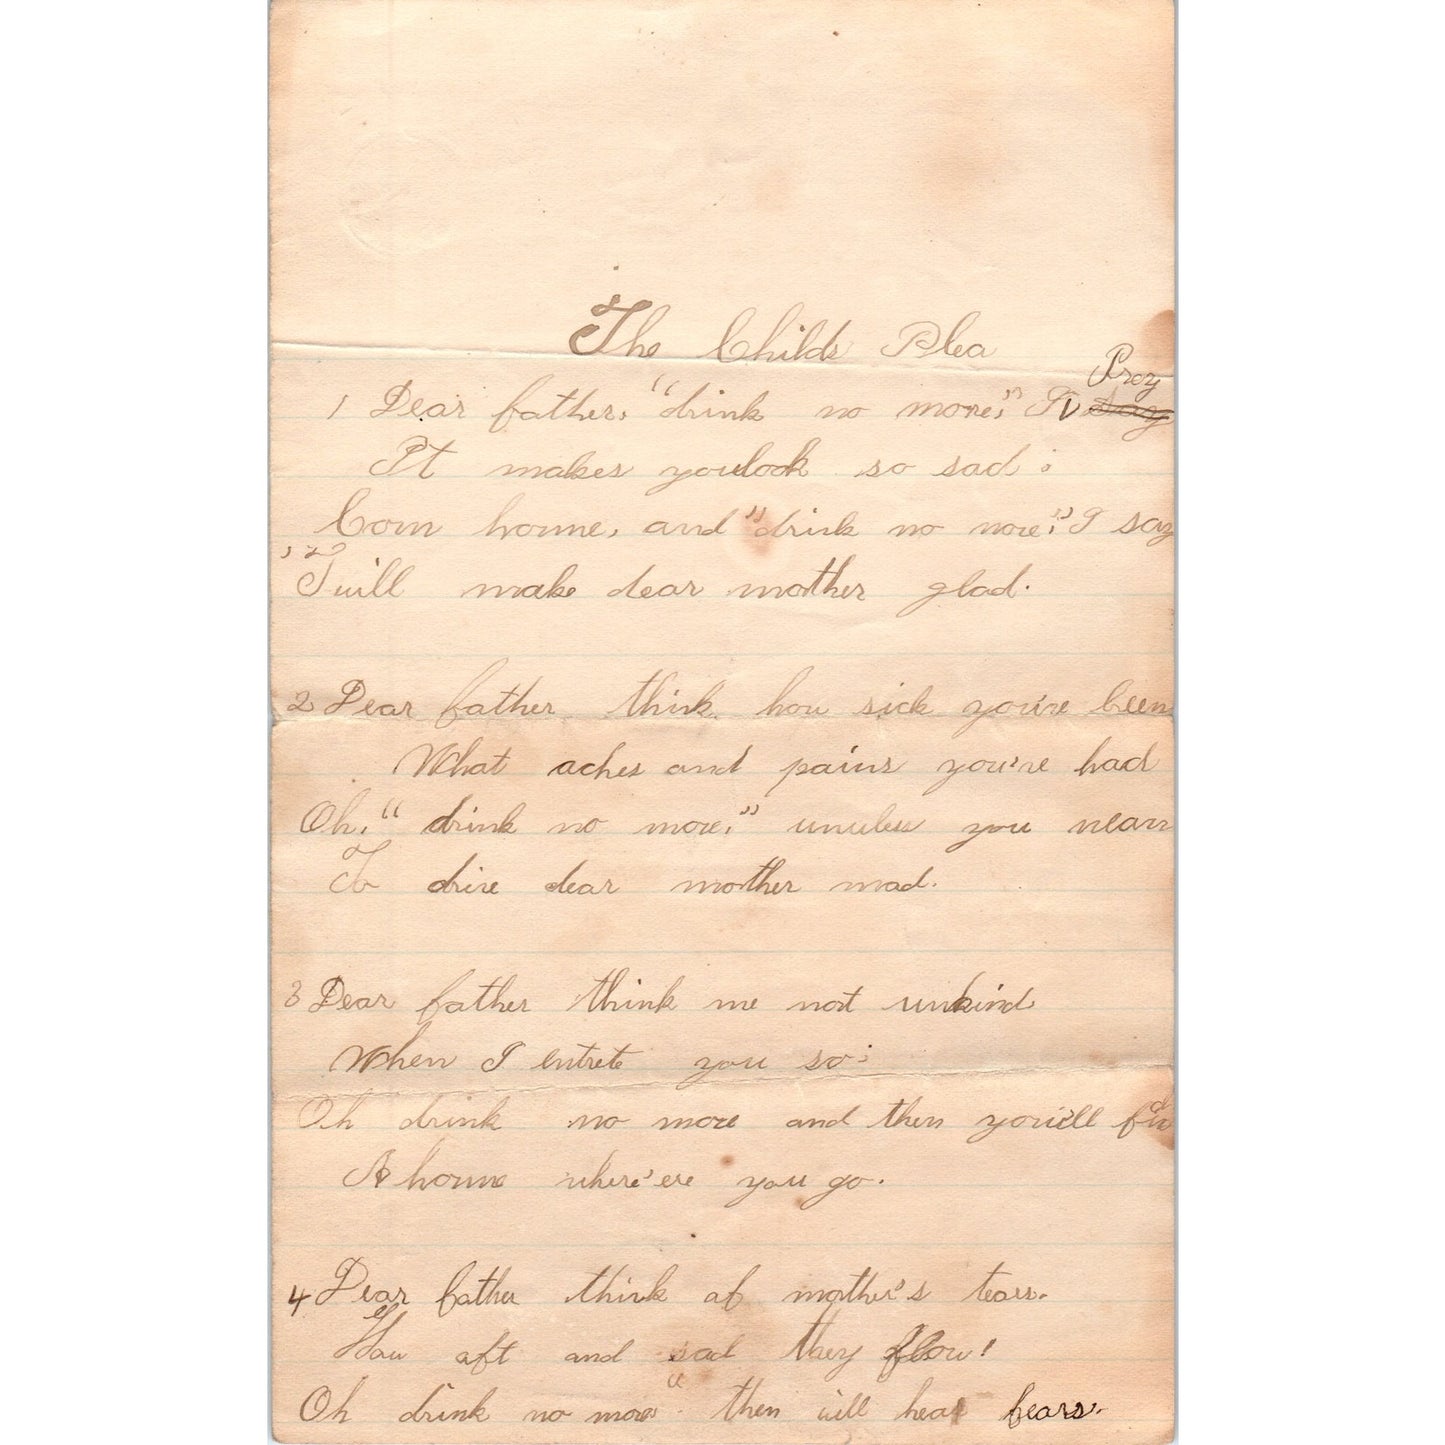 The Childs Plea
Pray
1 Dear father, "drink no more," I say
It makes you look so sad;
Com home, and "drink no more," I say
'Twill make dear mother glad.
2 Dear father think how sick you've been
What aches and pains you've had
Oh, "drink no more," you mean
To drive dear mother mad.
3 Dear father think me not unkind
When I entrete you so;
Oh drink no more and then you'll find
A home where'ere you go.
4 Dear father think of mother's tears.
How oft and sad they flow!
Oh drink no more" then will her fears.